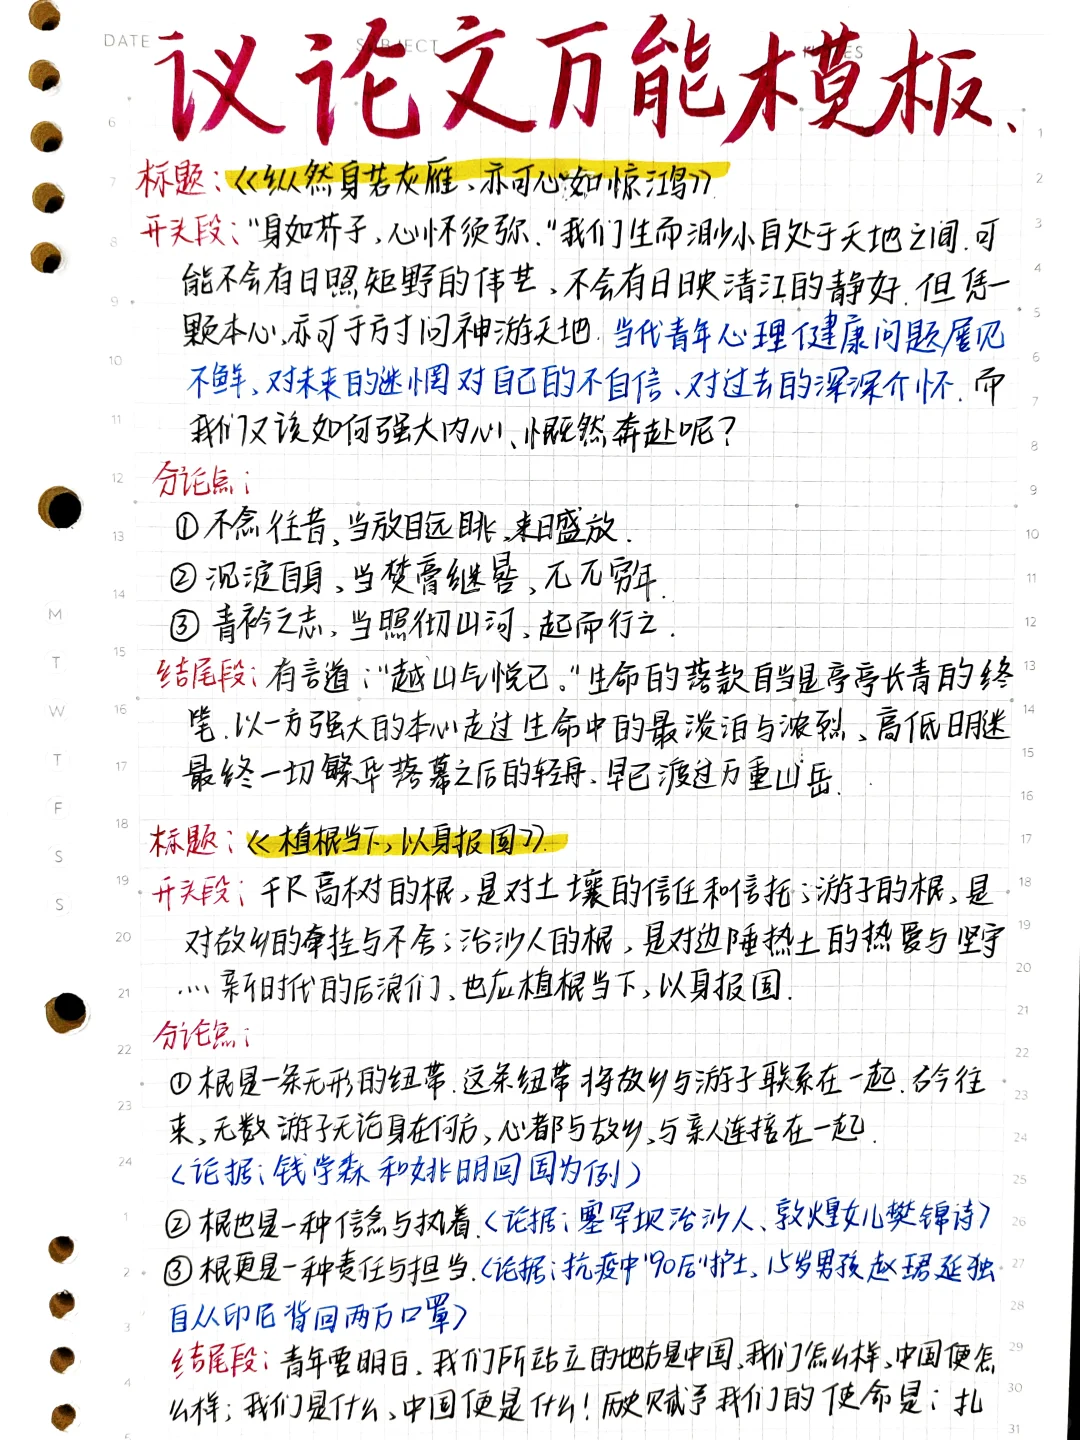 DATE
SUBJECT
议论文万能模板、
标题:《纵然身若灰雁、亦可心如惊鸿》
开头段:"身如芥子,心怀须弥."我们生而渺小自处于天地之间.可
能不会有日照矩野的伟岂、不会有日映清江的静好.但凭一
颗本心,亦可于方寸间神游天地.当代青年心理健康问题屡见
不鲜、对未来的迷惘对自己的不自信、对过去的深深介怀.而
我们又该如何强大内心、慨然奔赴呢?
分论点:
①不念往昔、当放目远眺、来日盛放.
②沉淀自身、当焚膏继晷、兀兀穷年.
③青衿之志、当照彻山河、起而行之.
结尾段:有言道:"越山与悦己."生命的落款自当是亭亭长青的终
笔.以一方强大的本心走过生命中的最淡泊与浓烈、高低明迷
最终一切繁华落幕之后的轻舟、早已渡过万重山岳.
标题:《植根当下,以身报国》.
开头段:千尺高树的根,是对土壤的信任和信托;游子的根,是
对故乡的牵挂与不舍;治沙人的根,是对边陲热土的热爱与坚守
…新时代的后浪们、也应植根当下,以身报国.
分论点:
①根是一条无形的纽带.这条纽带将故乡与游子联系在一起.古今往
来、无数游子无论身在何方,心都与故乡、与亲人连接在一起.
(论据:钱学森和姚明回国为例)
②根也是一种信念与执着.(论据:塞罕坝治沙人、敦煌女儿樊锦诗)
③根更是一种责任与担当.(论据:抗疫中"90后"护士、15岁男孩赵珺延独
自从印尼背回两万口罩)
结尾段:青年要明白、我们所站立的地方是中国、我们怎么样,中国便怎
么样;我们是什么、中国便是什么!历史赋予我们的使命是:扎